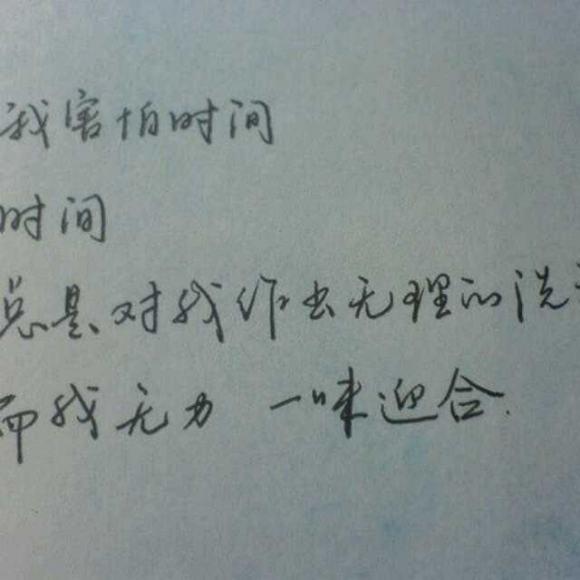 我害怕时间
时间
总是对我作出无理的洗
而我无力 一味迎合.